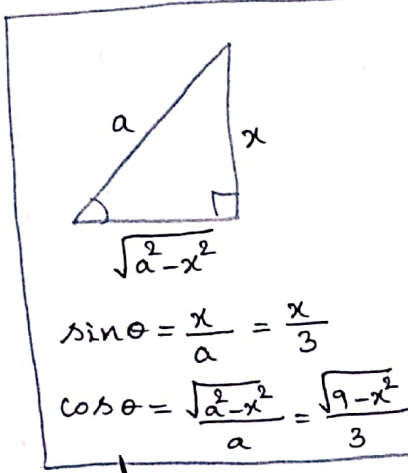 a
x
√a²-x²
sinθ = x/a = x/3
cosθ = √a²-x²/a = √9-x²/3